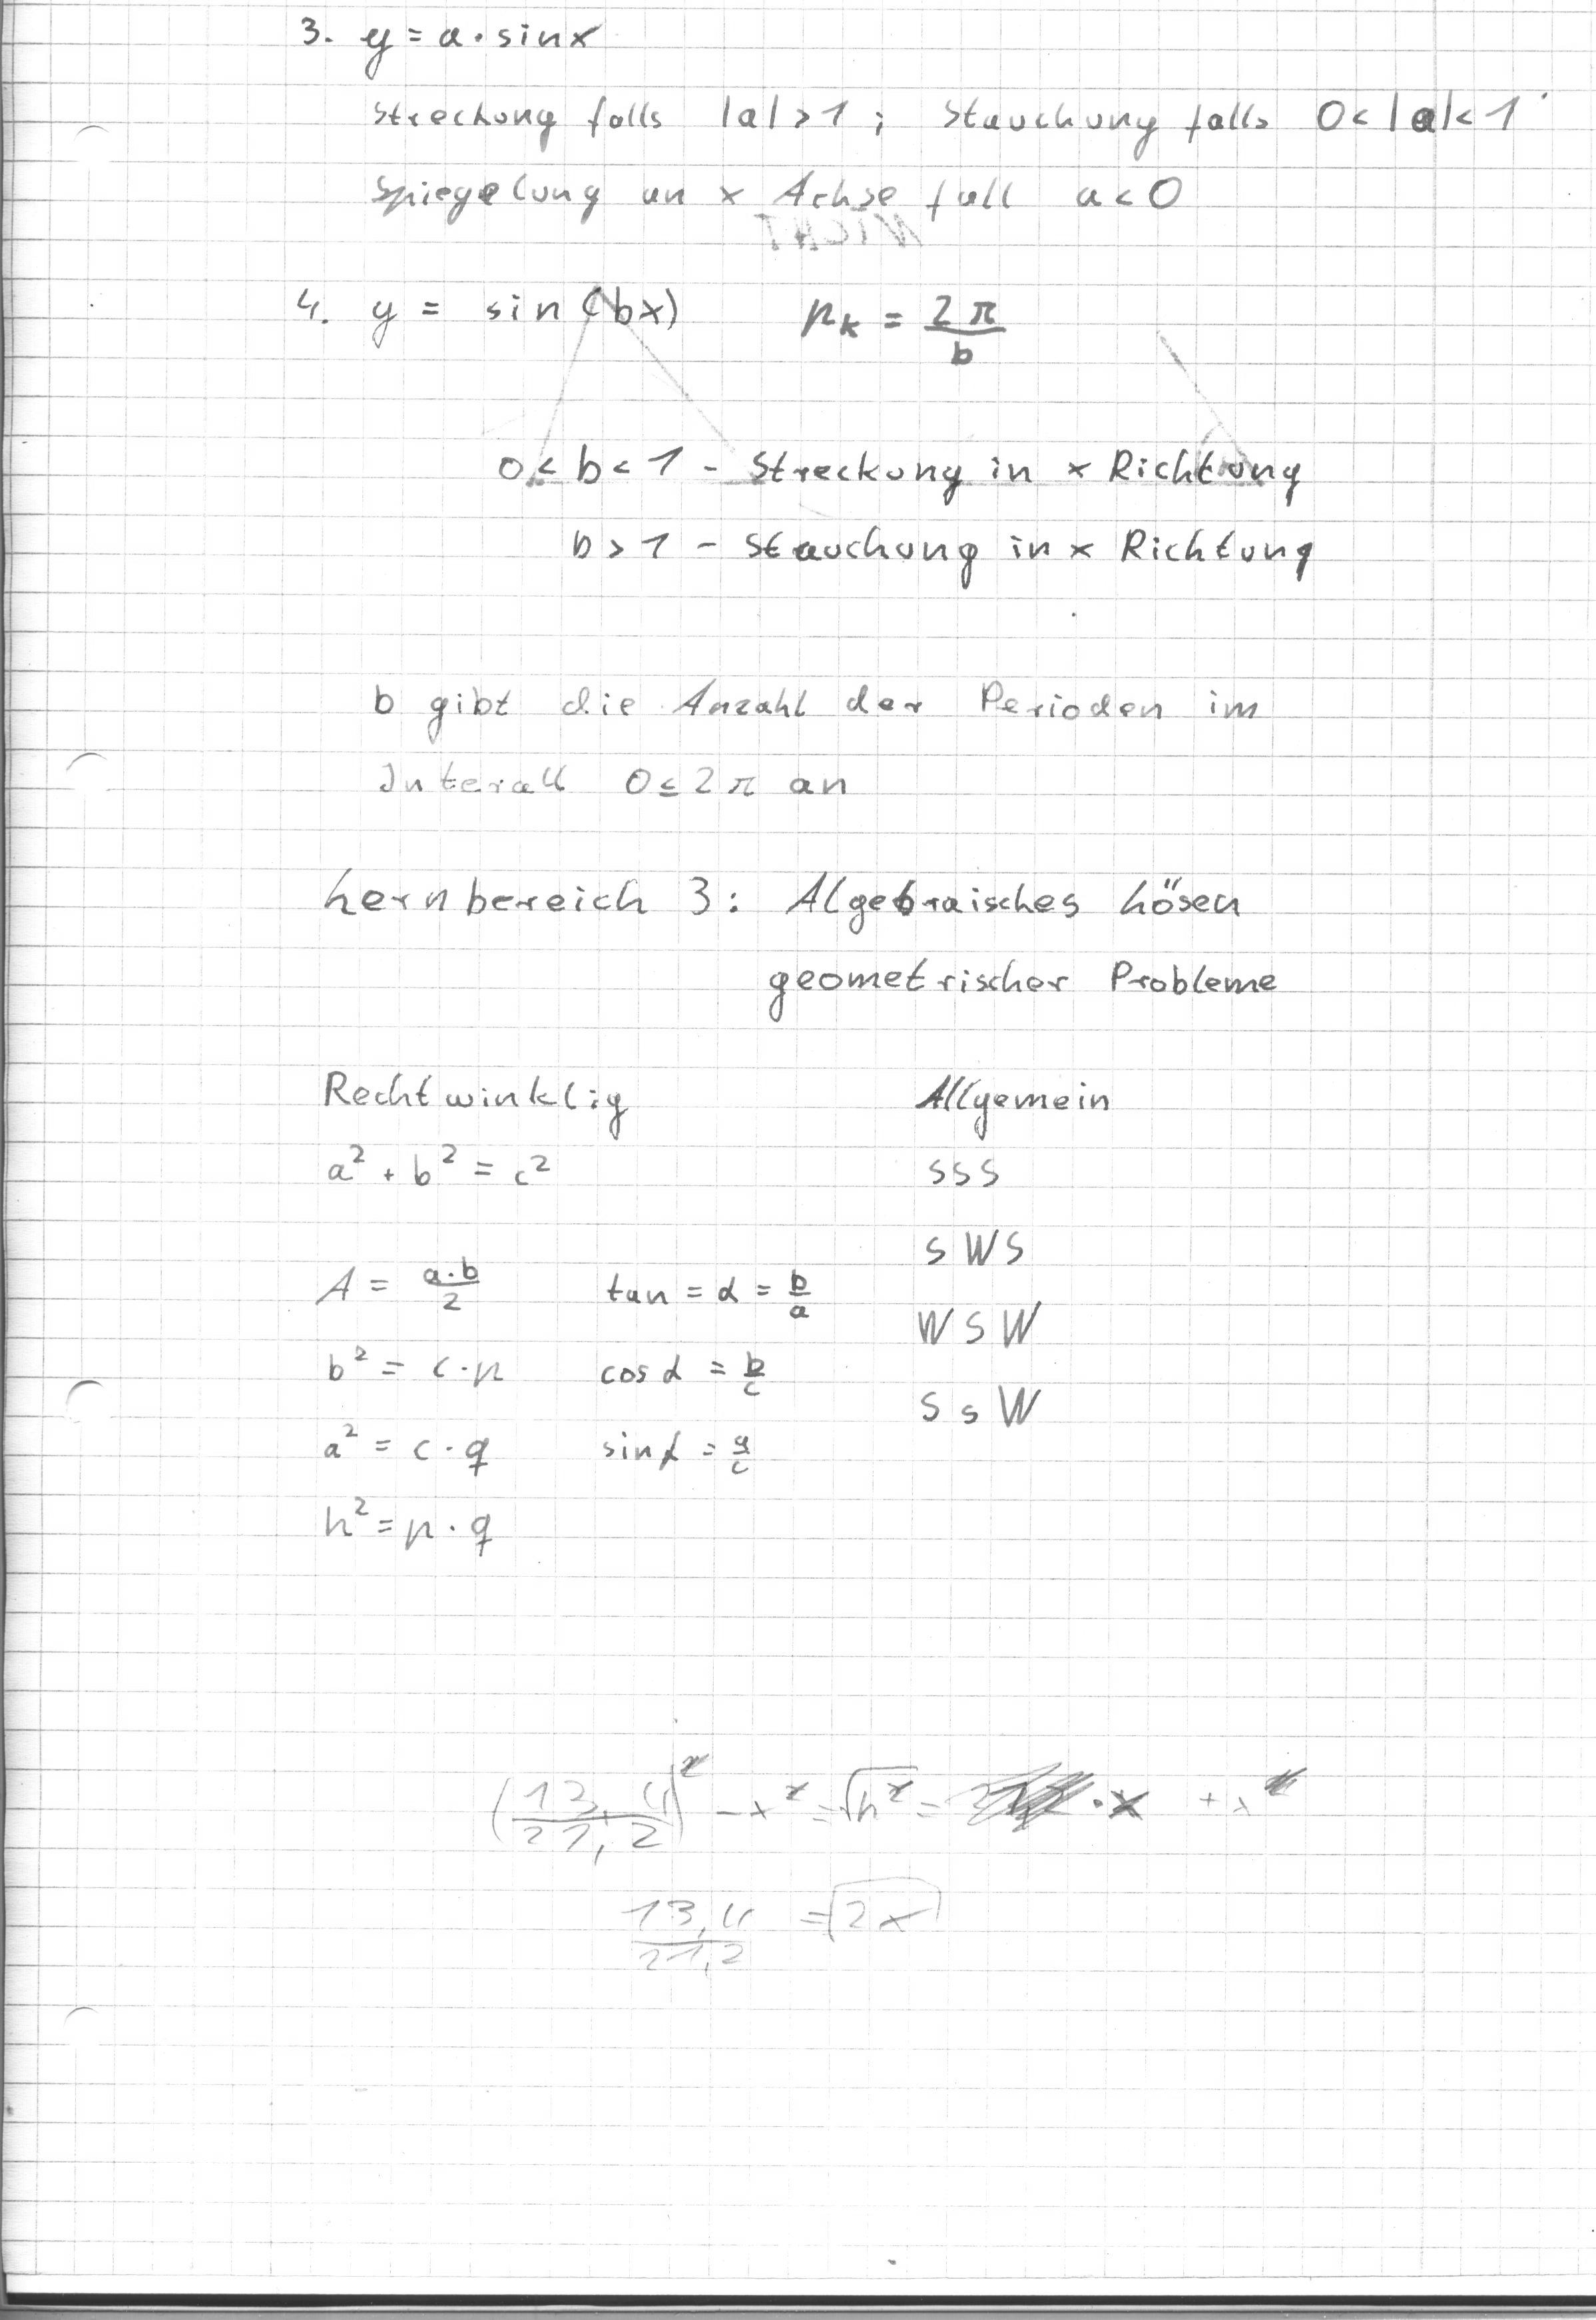 3. y = a · sinx
Streckung falls |a| > 1 ; Stauchung falls 0 < |a| < 1
Spiegelung an x Achse fall a < 0
4. y = sin (bx) p_k = 2π/b
0 < b < 1 - Streckung in x Richtung
b > 1 - Stauchung in x Richtung
b gibt die Anzahl der Perioden im
Interall 0 ≤ 2π an
Lernbereich 3: Algebraisches Lösen
geometrischer Probleme
Rechtwinklig Allgemein
a² + b² = c² SSS
SWS
A = a·b/2 tan = α = b/a
WSW
b² = c · p cos α = b/c
SsW
a² = c · q sin α = a/c
h² = p · q
(13,4/21,2)² - x² = √h² = · x + x
13,4/21,2 = √2x